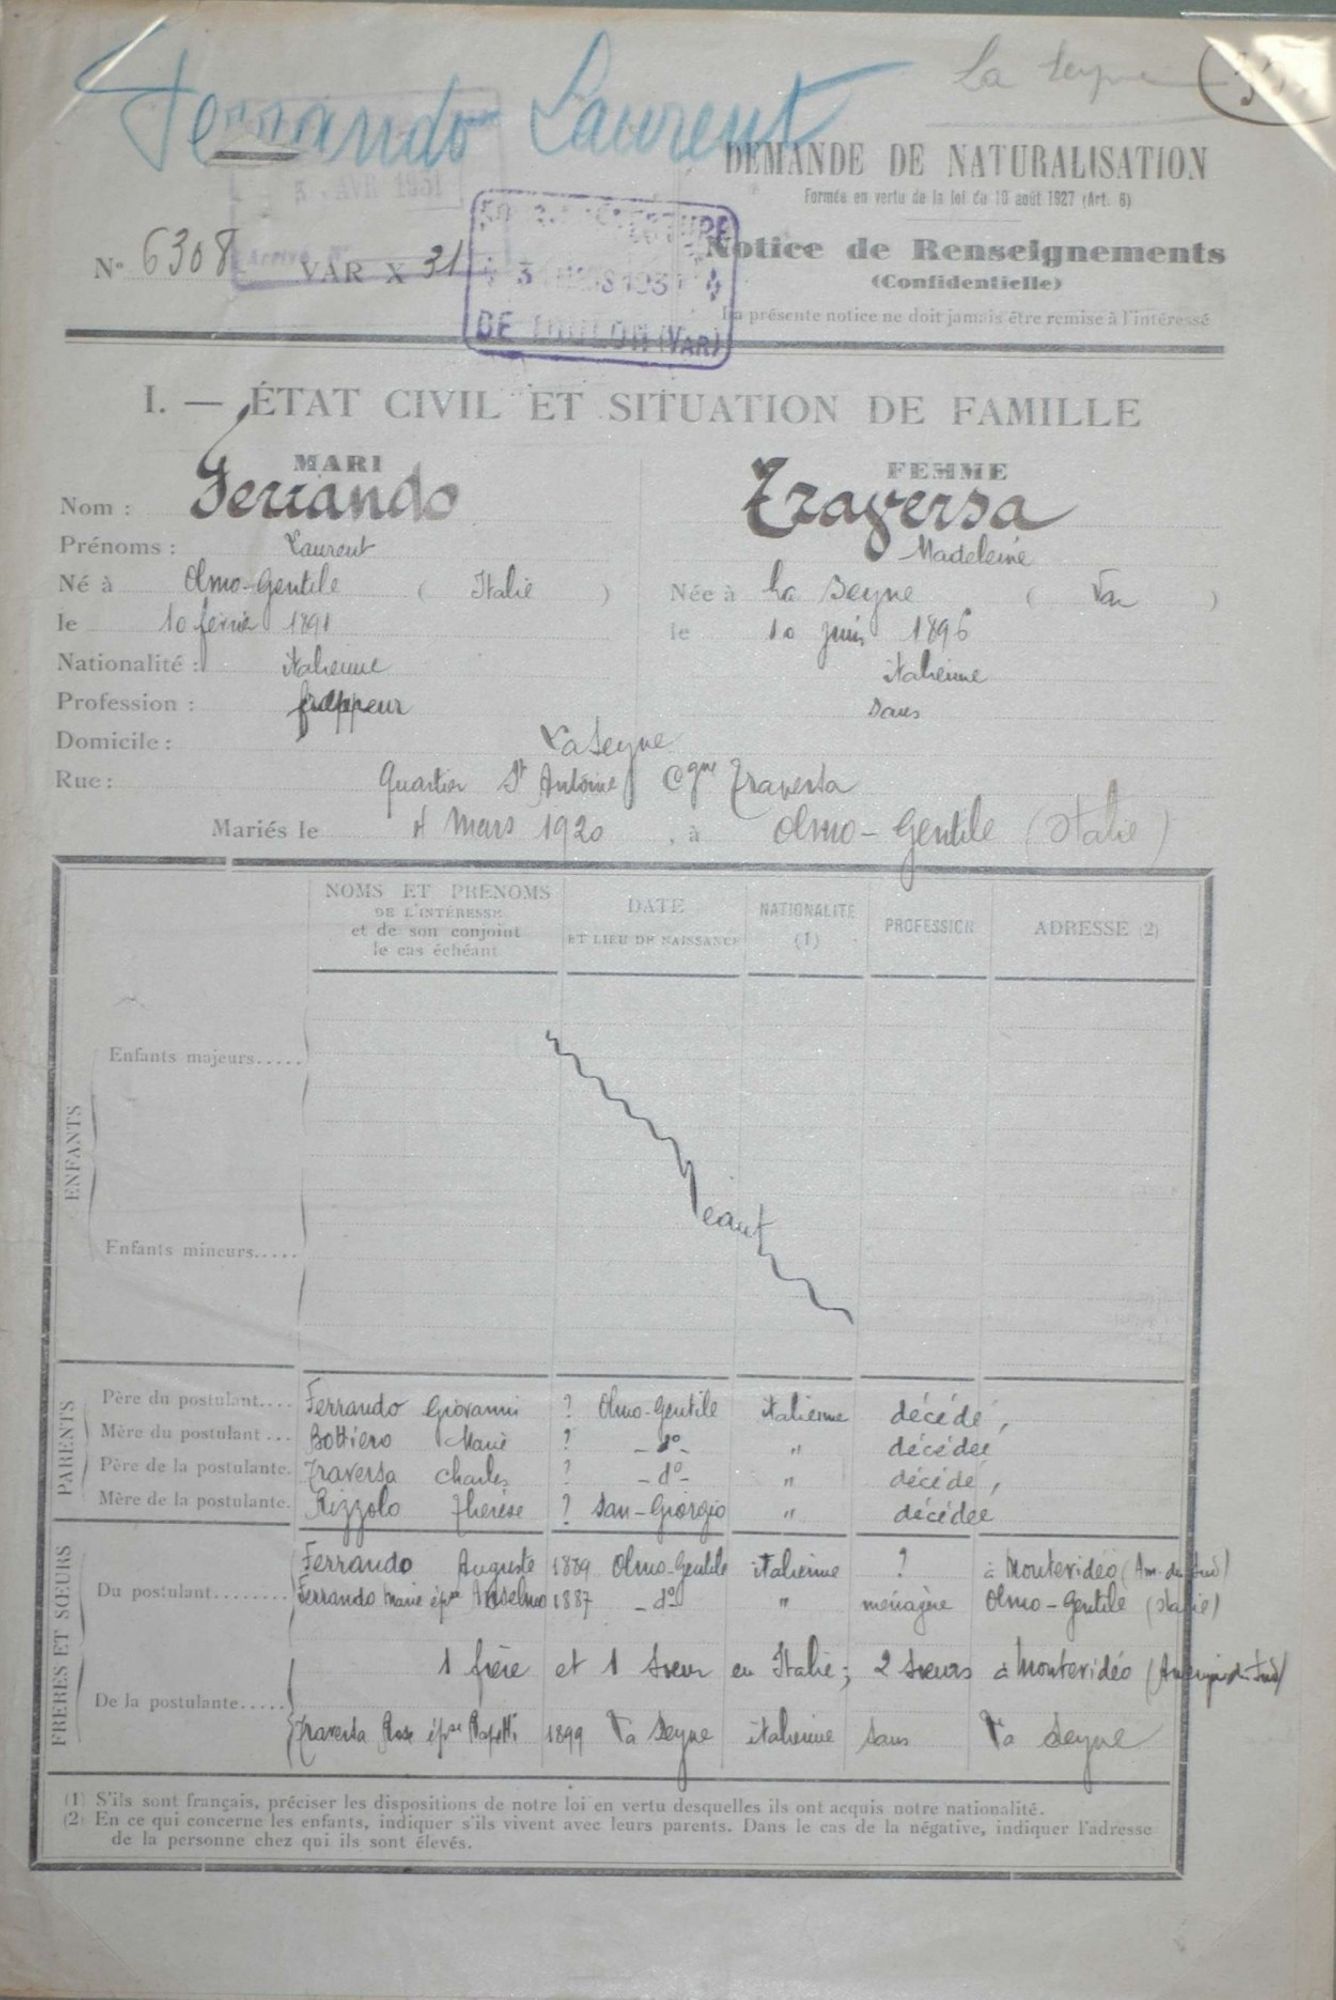 Ferrando Laurent
La Seyne
DEMANDE DE NATURALISATION
Formée en vertu de la loi du 10 août 1927 (Art. 6)
5 AVR 1931
SOUS-PRÉFECTURE
3 MARS 1931
DE TOULON (VAR)
N° 6308 VAR X 31
Notice de Renseignements
(Confidentielle)
La présente notice ne doit jamais être remise à l'intéressé
I. — ÉTAT CIVIL ET SITUATION DE FAMILLE
MARI FEMME
Nom : Ferrando Traversa
Prénoms : Laurent Madeleine
Né à Olmo-Gentile ( Italie ) Née à La Seyne ( Var )
le 10 février 1891 le 10 juin 1896
Nationalité : italienne italienne
Profession : frappeur sans
Domicile : La Seyne
Rue : Quartier St Antoine Cgne Traversa
Mariés le 4 Mars 1920, à Olmo-Gentile (Italie)
NOMS ET PRÉNOMS DATE NATIONALITÉ PROFESSION ADRESSE (2)
DE L'INTÉRESSÉ ET LIEU DE NAISSANCE (1)
et de son conjoint
le cas échéant
ENFANTS
Enfants majeurs.....
Néant
Enfants mineurs.....
PARENTS
Père du postulant.... Ferrando Giovanni ? Olmo-Gentile italienne décédé,
Mère du postulant ... Bottiero Marie ? - do - " décédée
Père de la postulante. Traversa Charles ? - do - " décédé,
Mère de la postulante. Rizzolo Thérèse ? San-Giorgio " décédée
FRÈRES ET SŒURS
Du postulant........ Ferrando Auguste 1889 Olmo-Gentile italienne ? à Montevideo (Am. du Sud)
Ferrando Marie épse Anselmo 1887 - do " ménagère Olmo-Gentile (Italie)
1 frère et 1 sœur en Italie ; 2 sœurs à Montevidéo (Amérique du Sud)
De la postulante.....
Traversa Rose épse Rapetti 1899 La Seyne italienne sans La Seyne
(1) S'ils sont français, préciser les dispositions de notre loi en vertu desquelles ils ont acquis notre nationalité.
(2) En ce qui concerne les enfants, indiquer s'ils vivent avec leurs parents. Dans le cas de la négative, indiquer l'adresse
de la personne chez qui ils sont élevés.